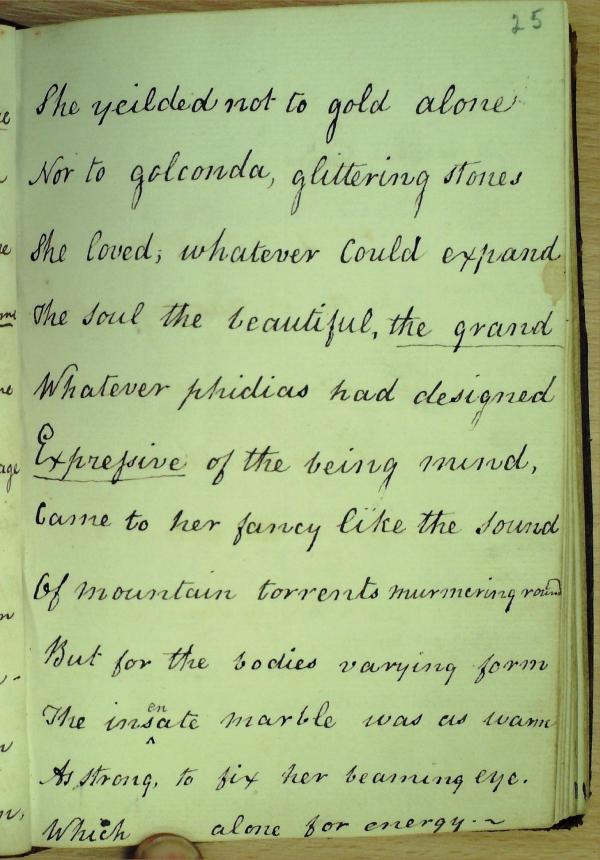 25
She yeilded not to gold alone
Nor to golconda, glittering stones
She loved; whatever Could expand
The soul the beautiful, the grand
Whatever phidias had designed
Expressive of the being mind,
Came to her fancy like the sound
Of mountain torrents murmering round
But for the bodies varying form
The insenate marble was as warm
As strong, to fix her beaming eye.
Which alone for energy.~